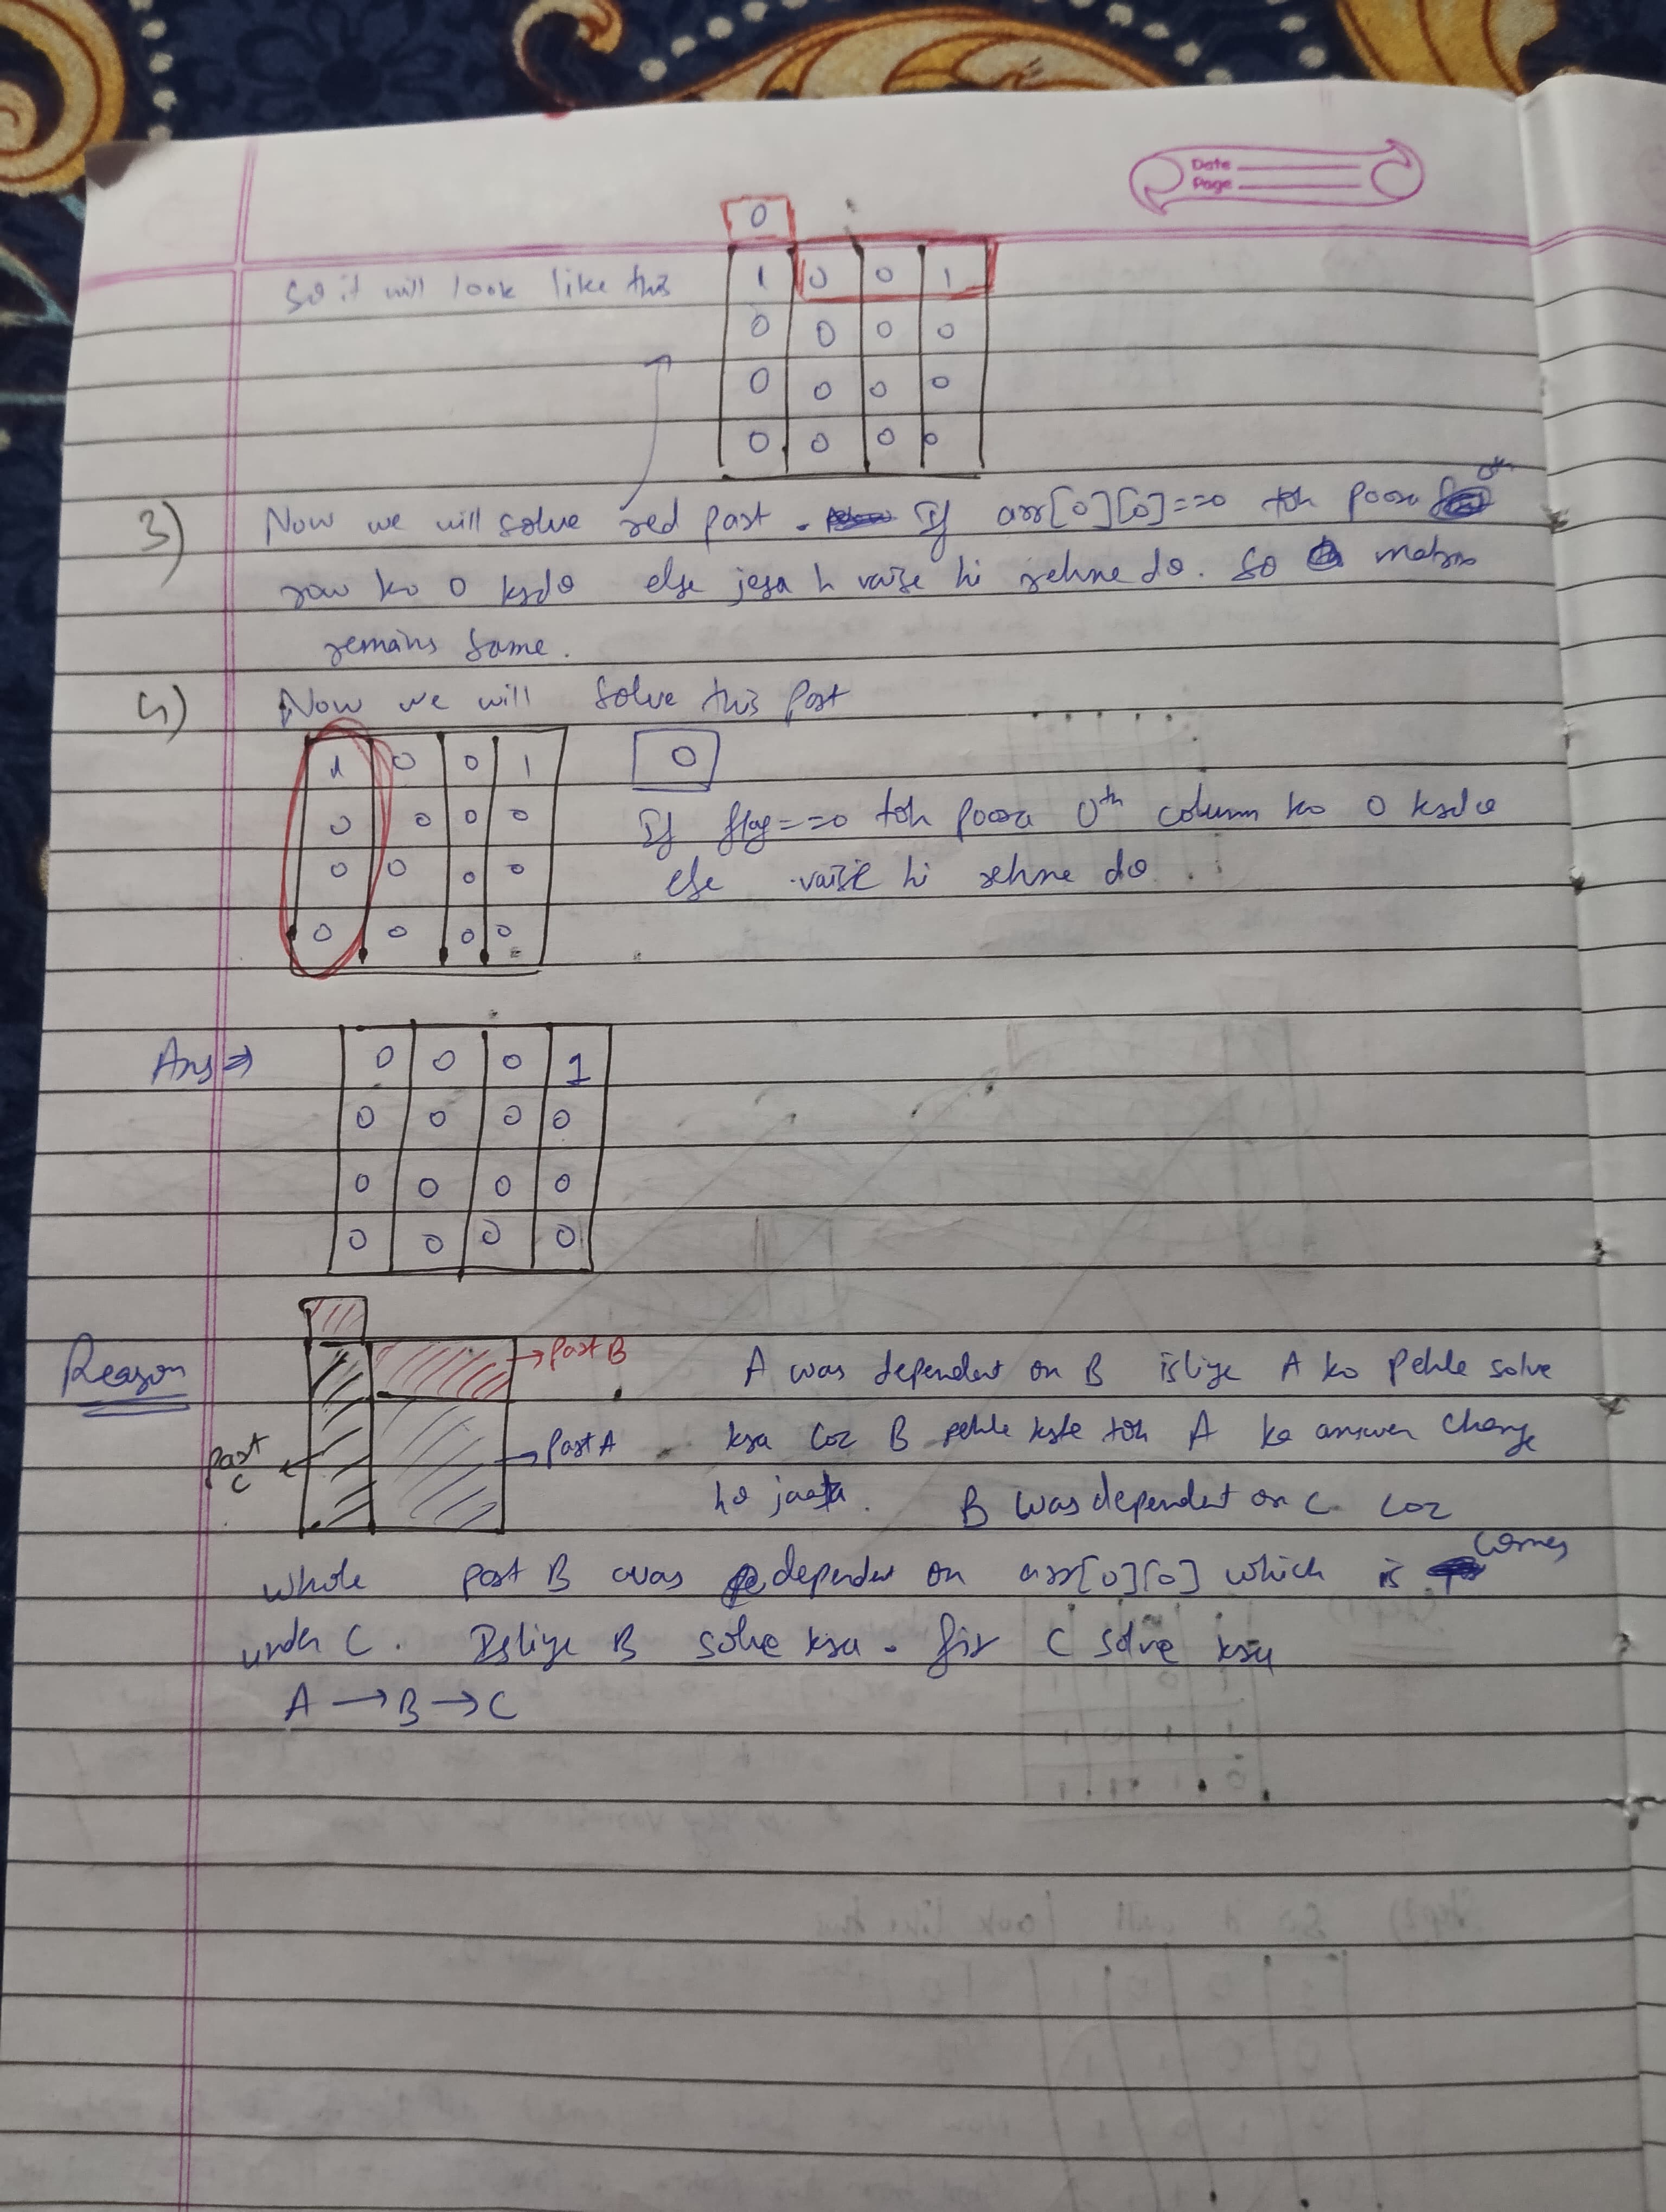 Date
Page
0
So it will look like this
1 0 0 1
0 0 0 0
0 0 0 0
0 0 0 0
3) Now we will solve red part. If arr[0][0]==0 toh poora 0th
row ko 0 krdo else jesa h vaise hi rehne do. So matrix
remains same.
4) Now we will solve this part
1 0 0 1
0 0 0 0
0 0 0 0
0 0 0 0
0
If flag==0 toh poora 0th column ko 0 krdo
else vaise hi rehne do.
Ans ⇒
0 0 0 1
0 0 0 0
0 0 0 0
0 0 0 0
Reason
→ Part B
→ Part A
Part C
A was dependent on B isliye A ko Pehle solve
kra coz B pehle krte toh A ka answer change
ho jaata. B was dependent on C coz
whole part B was dependent on arr[0][0] which is comes
under C. Isliye B solve kra. fir C solve kra
A → B → C